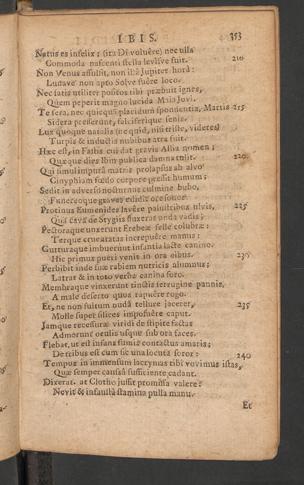 IBIS. 353
Natus es infelix; (ita Dî voluêre) nec ulla
Commoda nascenti stella levisve fuit. 210
Non Venus affulsit, non illâ Jupiter horâ:
Lunave non apto Solve fuere loco.
Nec satis utiliter positos tibi præbuit ignes,
Quem peperit magno lucida Maia Jovi.
Te fera, nec quicquam placidum spondentia, Martis 215
Sidera presserunt, falciferique senis.
Lux quoque natalis (ne quid, nisi triste, videres)
Turpis & inductis nubibus atra fuit.
Hæc est, in Fastis cui dat gravis Allia nomen;
Quæque dies Ibin publica damna tulit. 220
Qui simul impurâ matris prolapsus ab alvo
Cinyphiam fœdo corpore pressit humum;
Sedit in adverso nocturnus culmine bubo,
Funereoque graves edidit ore sonos.
Protinus Eumenides lavêre palustribus ulvis, 225
Quà cava de Stygiis fluxerat unda vadis;
Pectoraque unxerunt Erebeæ felle colubræ:
Terque cruentatas increpuêre manus:
Gutturaque imbuerunt infantia lacte canino.
Hic primus pueri venit in ora cibus. 230
Perbibit inde suæ rabiem nutricis alumnus;
Latrat & in toto verba canina foro.
Membraque vinxerunt tinctis ferrugine pannis,
A male deserto quos rapuêre rogo.
Et, ne non fultum nudâ tellure jaceret, 235
Molle super silices imposuêre caput.
Jamque recessuræ viridi de stipite factas
Admorunt oculis usque sub ora faces.
Flebat, ut est infans fumis contactus amaris;
De tribus est cum sic una locuta soror: 240
Tempus in immensum lacrymas tibi vovimus istas,
Quæ semper causâ sufficiente cadant.
Dixerat. at Clotho jussit promissa valere:
Nevit & infaustâ stamina pulla manu.
Et